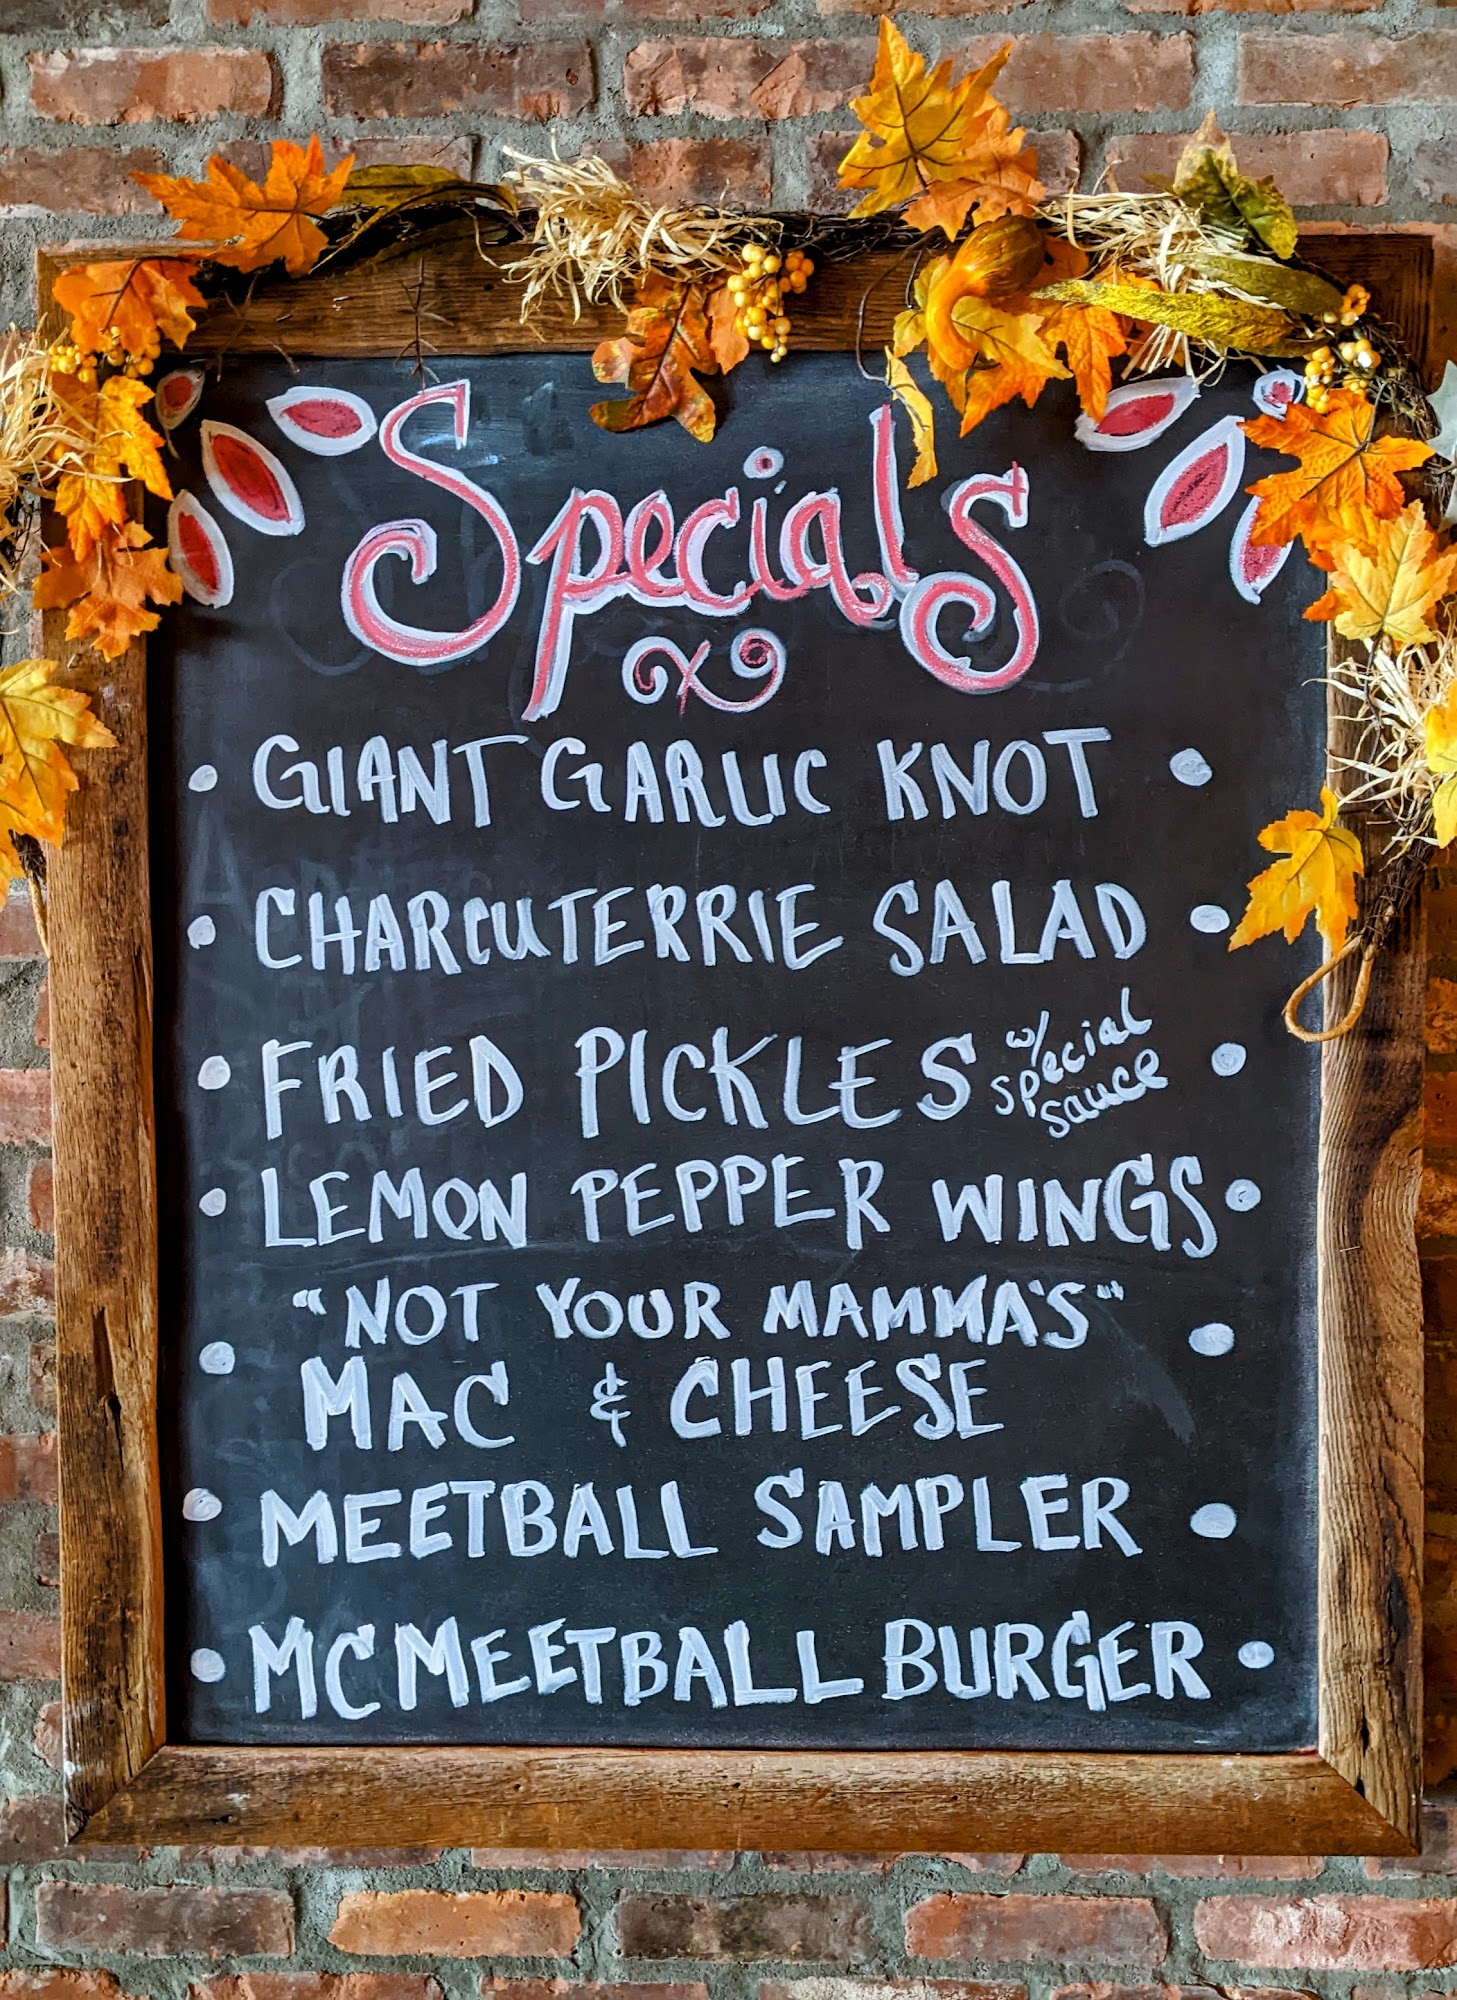 Specials
• GIANT GARLIC KNOT •
• CHARCUTERRIE SALAD •
• FRIED PICKLES w/ special sauce •
• LEMON PEPPER WINGS •
"NOT YOUR MAMMA'S"
• MAC & CHEESE •
• MEETBALL SAMPLER •
• MCMEETBALL BURGER •